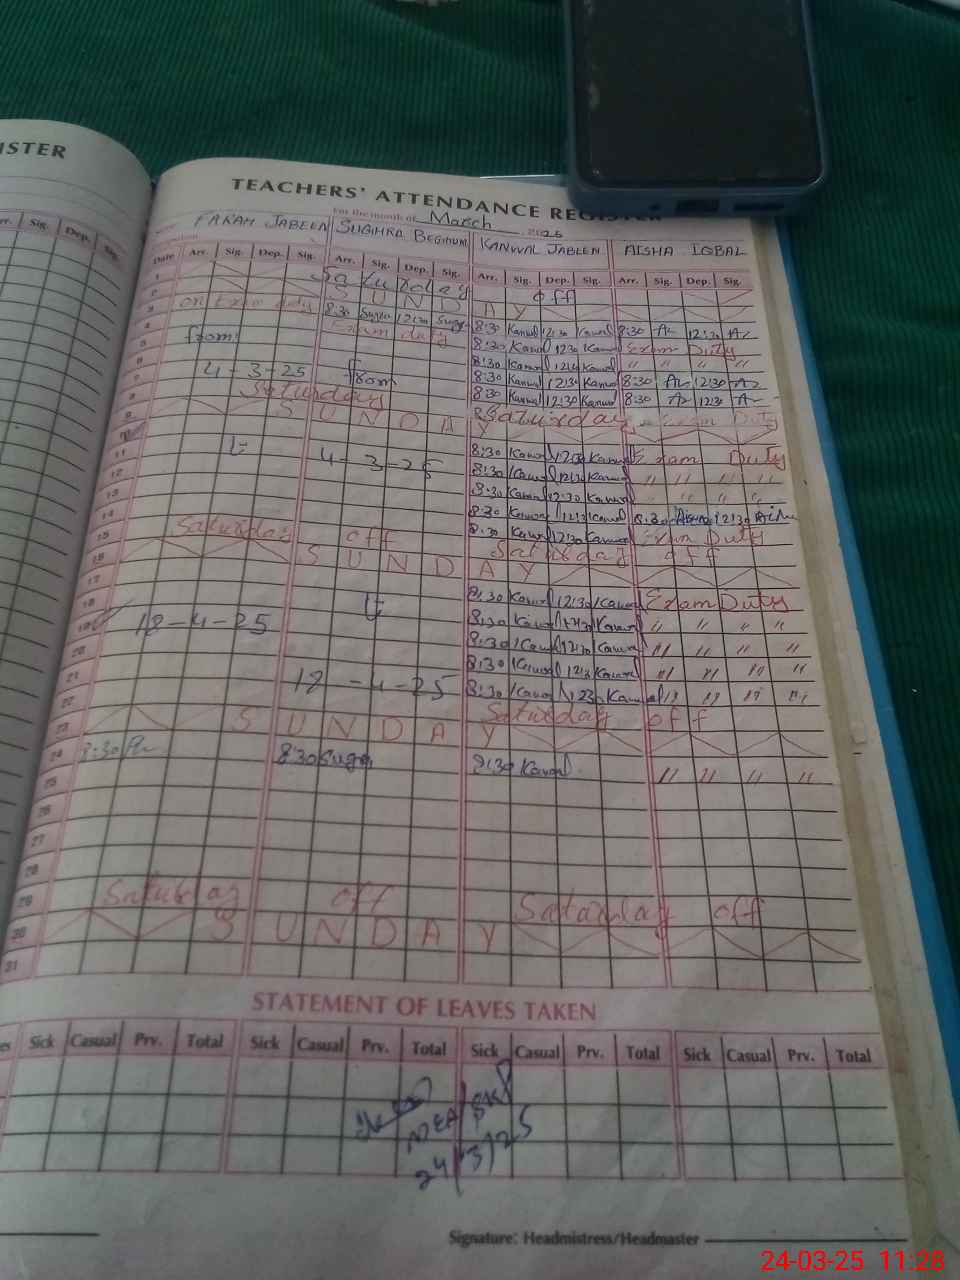 ISTER
rr. Sig. Dep. Sig.
TEACHERS' ATTENDANCE REGISTER
For the month of March 2025
FARAH JABEEN SUGHRA BEGHUM KANWAL JABEEN AISHA IQBAL
Date Arr. Sig. Dep. Sig. Arr. Sig. Dep. Sig. Arr. Sig. Dep. Sig. Arr. Sig. Dep. Sig.
1 Saturday off
2 S U N D A Y
3 on Exam duty 8:30 12:30 8:30 Kanwal 12:30 Kanwal 8:30 12:30
4 Exam duty 8:30 Kanwal 12:30 Kanwal Exam Duty
5 from 8:30 Kanwal Kanwal " " " "
6 4-3-25 from 8:30 Kanwal 12:30 Kanwal 8:30 12:30
7 8:30 Kanwal 12:30 Kanwal 8:30 12:30
8 Saturday Saturday Exam Duty
9 S U N D A Y
10 8:30 Kanwal 12:30 Kanwal Exam Duty
11 4-3-25 8:30 Kanwal 12:30 Kanwal " " " "
12 8:30 Kanwal 12:30 Kanwal " " " "
13 8:30 Kanwal Kanwal 8:30 Aisha 12:30
14 8:30 Kanwal 12:30 Kanwal Exam Duty
15 Saturday off Saturday off
16 S U N D A Y
17 8:30 Kanwal 12:30 Kanwal Exam Duty
18 8:30 Kanwal Kanwal " " " "
19 18-4-25 8:30 Kanwal 12:30 Kanwal " " " "
20 8:30 Kanwal Kanwal " " " "
21 18-4-25 8:30 Kanwal Kanwal " " " "
22 Saturday off
23 S U N D A Y
24 8:30 8:30 8:30 Kanwal " " " "
25
26
27
28
29 Saturday off Saturday off
30 S U N D A Y
31
STATEMENT OF LEAVES TAKEN
es Sick Casual Prv. Total Sick Casual Prv. Total Sick Casual Prv. Total Sick Casual Prv. Total
24/3/25
Signature: Headmistress/Headmaster
24-03-25 11:28